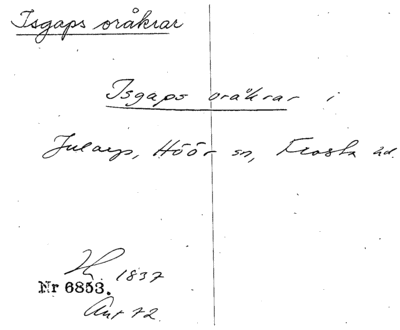 Isgaps oråkrar
Isgaps oråkrar i
Jularp, Höör sn, Frosta hd.
1837
Nr 6853.
Ant 72